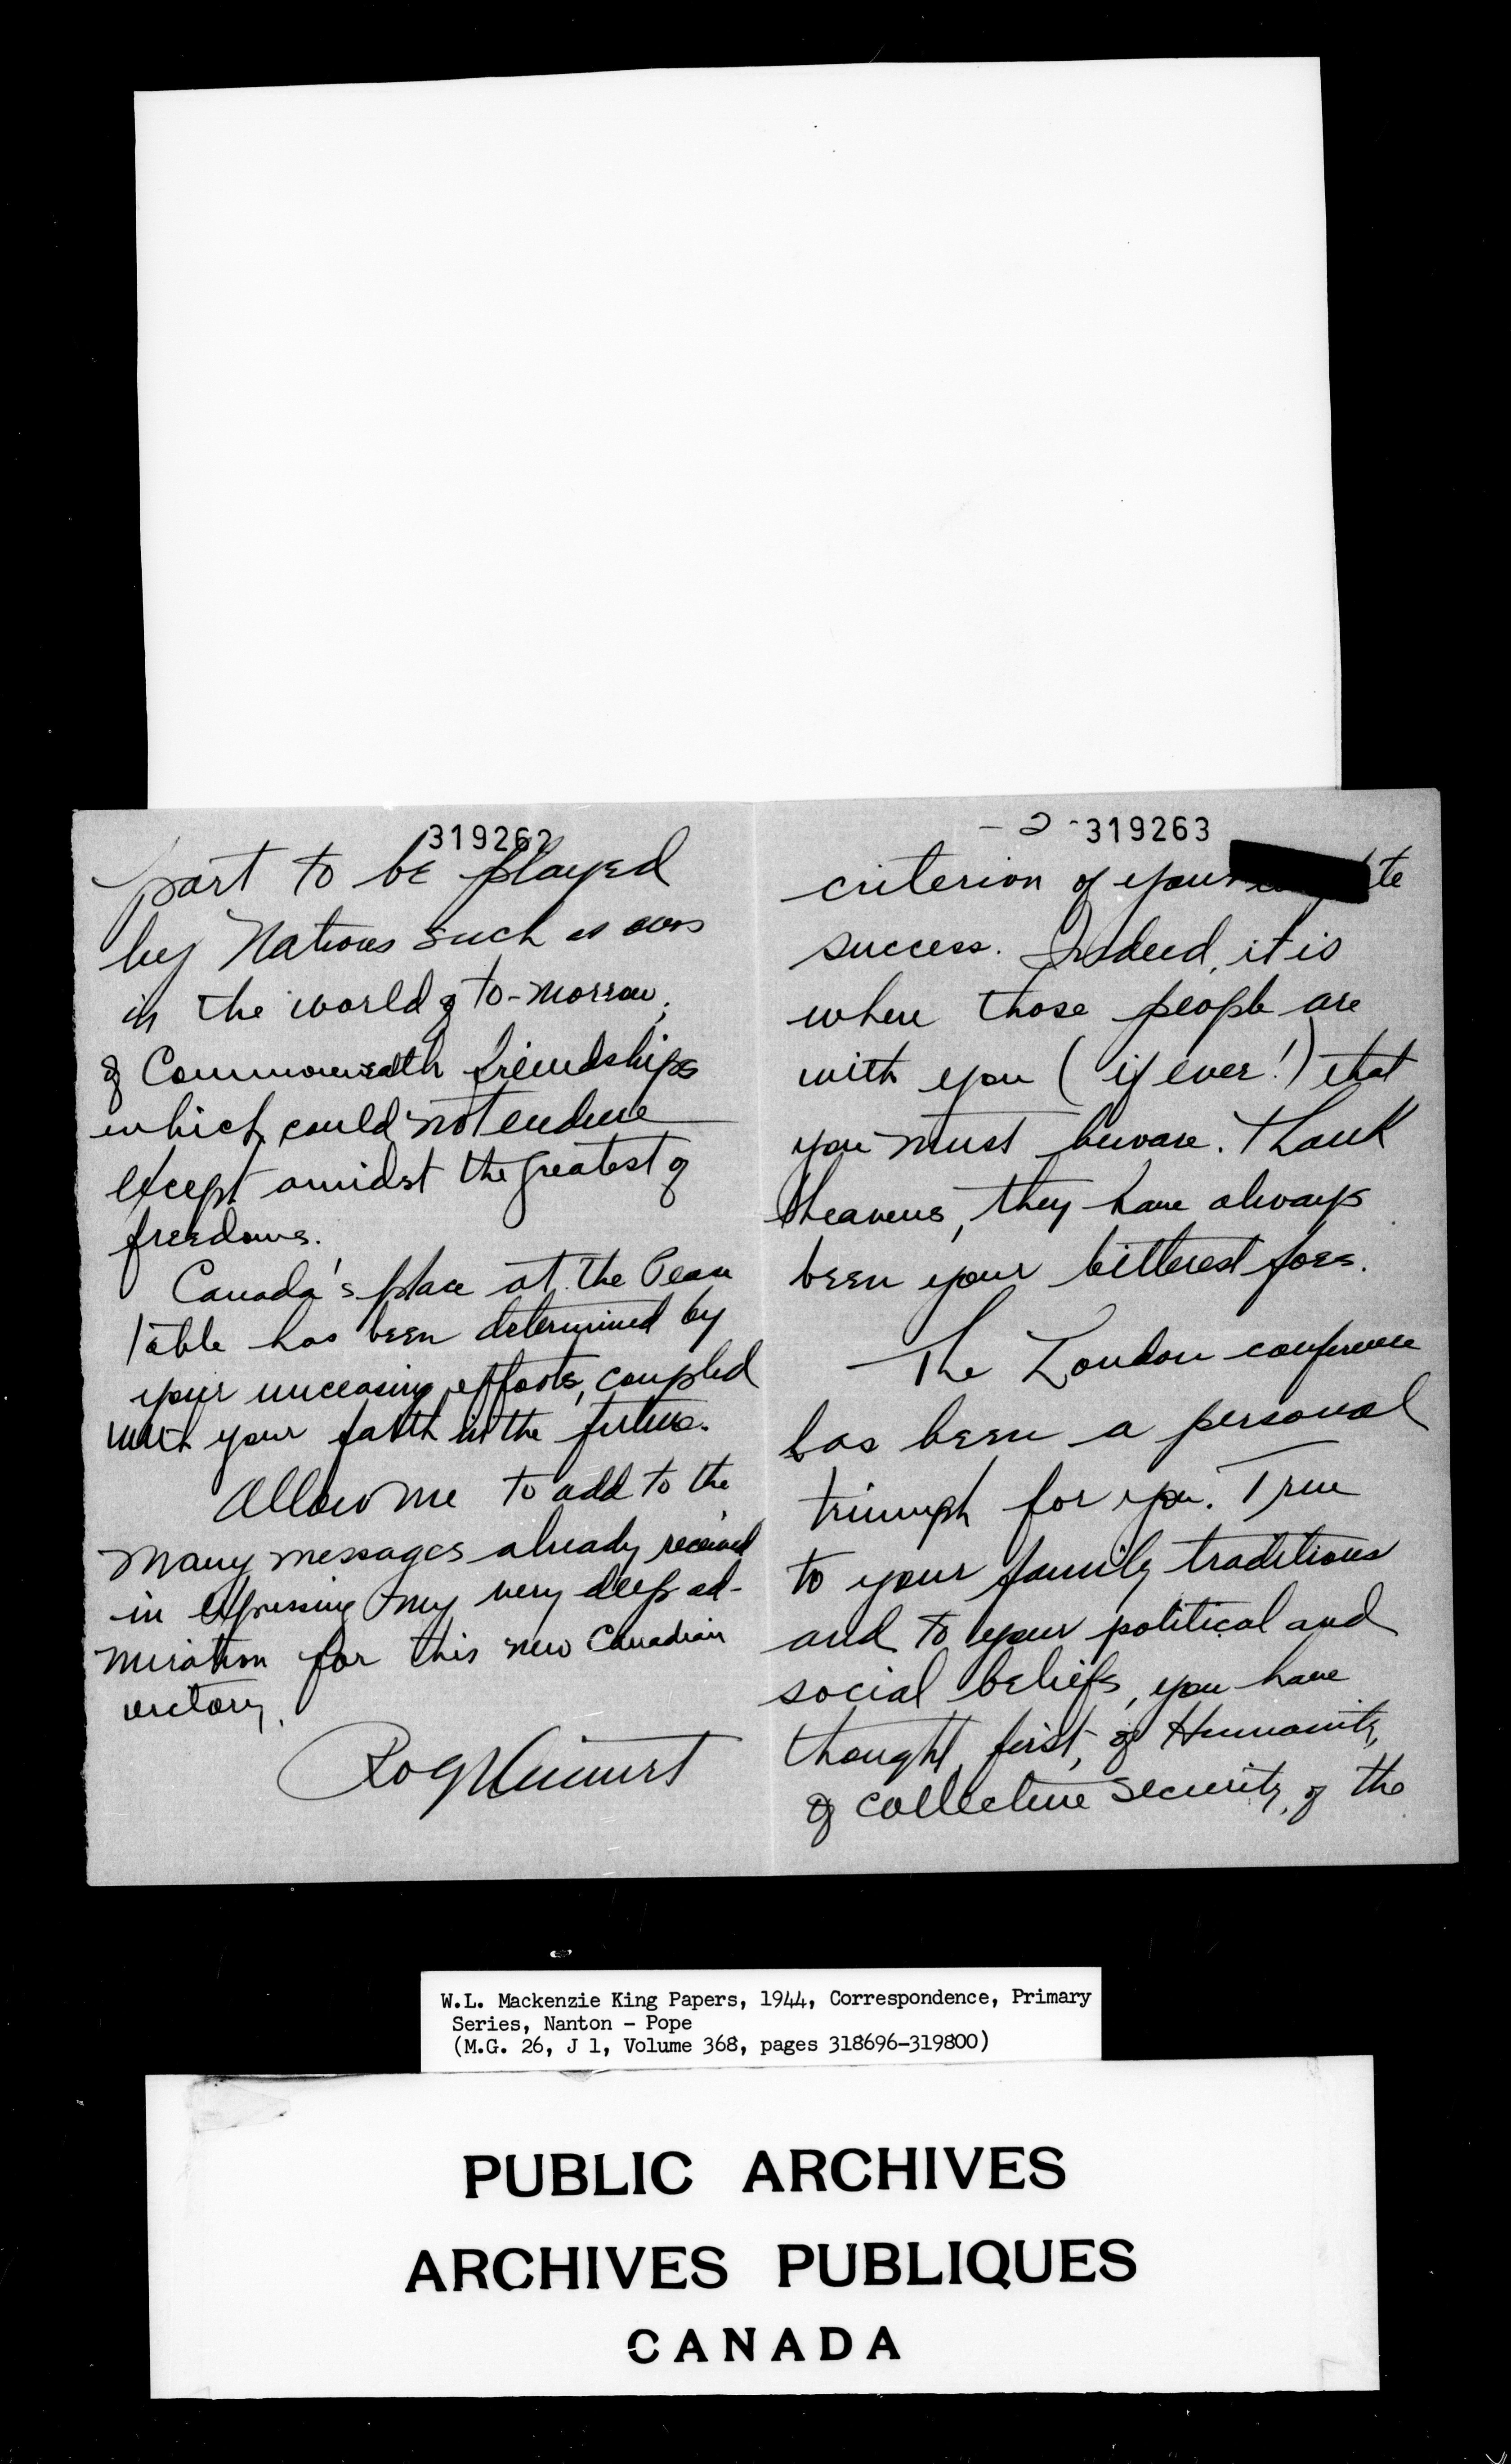 319262
part to be played
by Nations such as ours
in the world of to-morrow;
of Commonwealth friendships
which could not endure
except amidst the greatest of
freedoms.
Canada's place at the Peace
table has been determined by
your unceasing efforts, coupled
with your faith in the future.
Allow me to add to the
many messages already received
in expressing my very deep ad-
miration for this new Canadian
victory.
- 2 - 319263
criterion of your
success. Indeed, it is
when those people are
with you (if ever!) that
you must beware. Thank
heavens, they have always
been your bitterest foes.
The London conference
has been a personal
triumph for you. True
to your family traditions
and to your political and
social beliefs, you have
thought first, of Humanity,
of collective security, of the
W.L. Mackenzie King Papers, 1944, Correspondence, Primary
Series, Nanton - Pope
(M.G. 26, J 1, Volume 368, pages 318696-319800)
PUBLIC ARCHIVES
ARCHIVES PUBLIQUES
CANADA